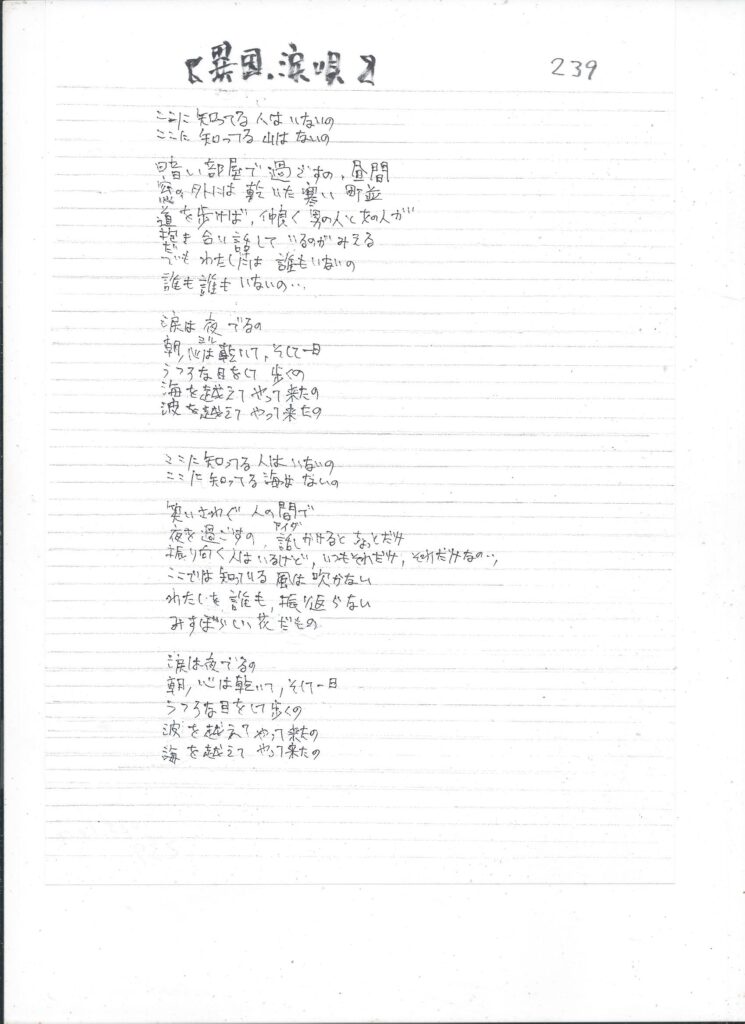 【異国.涙唄】
239
ここに知ってる人はいないの
ここに知ってる山はないの
暗い部屋で過ごすの、昼間
窓の外には乾いた寒い町並
道を歩けば、仲良く男の人と女の人が
抱き合い話しているのがみえる
でもわたしには誰もいないの
誰も誰もいないの…
涙は夜でるの
朝、心は乾いて、そして一日
うつろな目をして歩くの
海を越えてやって来たの
波を越えてやって来たの
ここに知ってる人はいないの
ここに知ってる海はないの
笑いさわぐ人の間で
アイダ
夜を過ごすの、話しかけるとちょっとだけ
振り向く人はいるけど、いつもそれだけ、それだけなの…
ここでは知っている風は吹かない
わたしを誰も、振り返らない
みすぼらしい花だもの
涙は夜でるの
朝、心は乾いて、そして一日
うつろな目をして歩くの
波を越えてやって来たの
海を越えてやって来たの